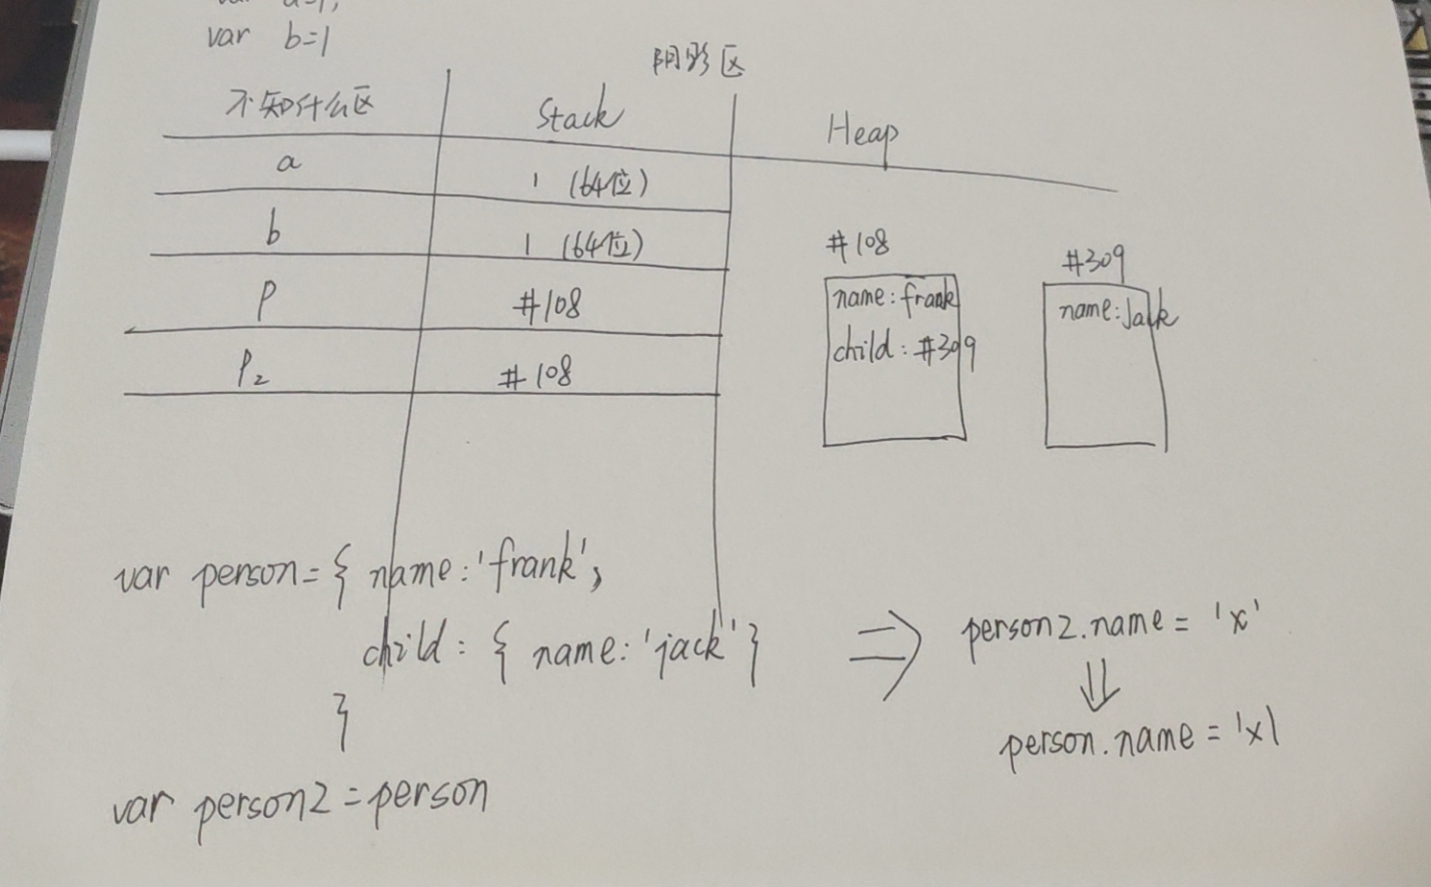 var a=1;
var b=1
阴影区
不知什么区 Stack Heap
a 1 (64位)
b 1 (64位)
p #108
p2 #108
#108
name:frank
child:#309
#309
name:Jack
var person={ name:'frank',
child: { name:'jack'}
}
var person2=person
⇒ person2.name = 'x'
⇓
person.name = 'x'